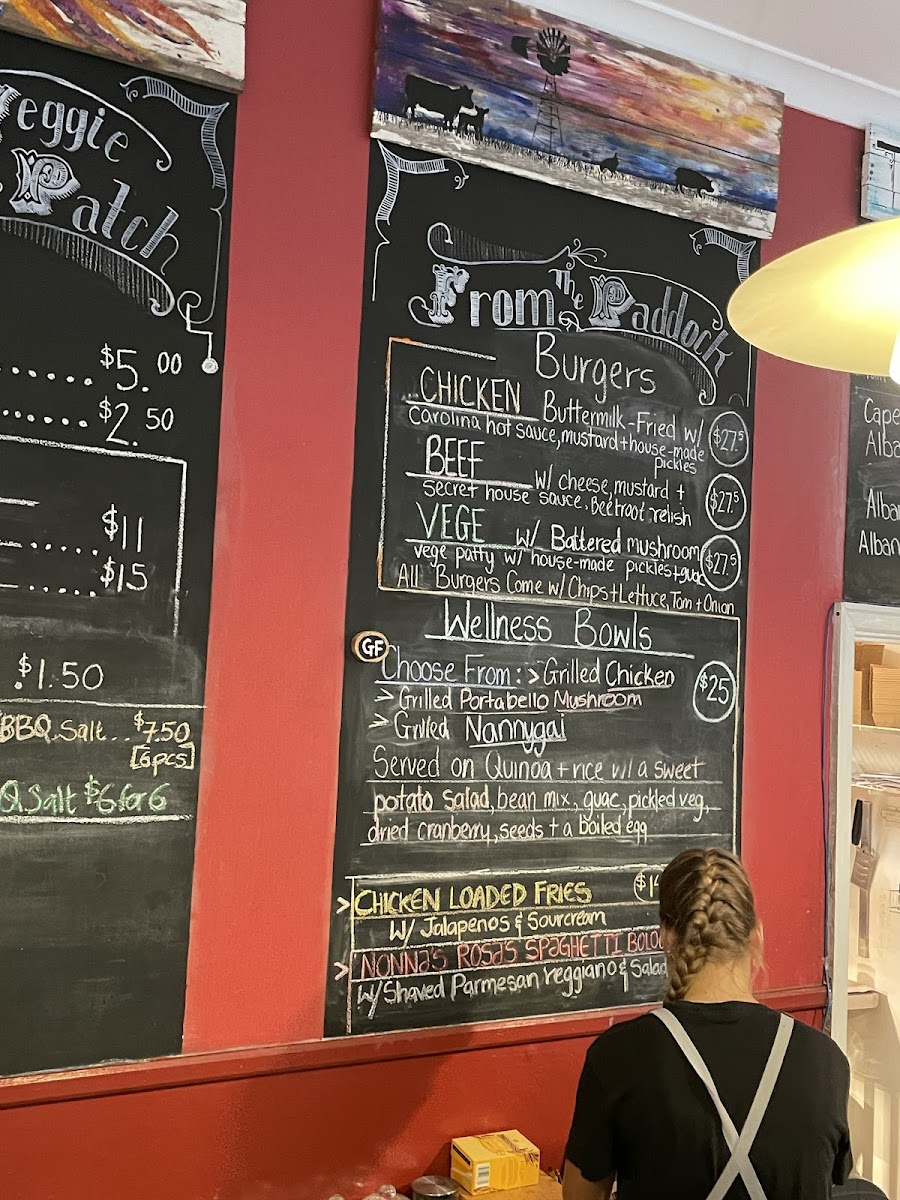 Veggie
Patch
$5.00
$2.50
$11
$15
$1.50
BBQ Salt... $7.50
[6pcs]
Salt $6 for 6
From The Paddock
Burgers
CHICKEN Buttermilk-Fried w/
Carolina hot sauce, mustard + house-made
pickles
$27.5
BEEF w/ cheese, mustard +
secret house sauce, Beetroot relish
$27.5
VEGE w/ Battered mushroom
vege patty w/ house-made pickles + guac
$27.5
All Burgers Come w/ Chips + Lettuce, Tom + Onion
Wellness Bowls
GF
Choose From: > Grilled Chicken
$25
> Grilled Portabello Mushroom
> Grilled Nannygai
Served on Quinoa + rice w/ a sweet
potato salad, bean mix, guac, pickled veg,
dried cranberry, seeds + a boiled egg
> CHICKEN LOADED FRIES
W/ Jalapenos & Sourcream
> NONNA'S ROSA'S SPAGHETTI
w/ Shaved Parmesan reggiano & Salad
Cape
Alba
Alban
Alban